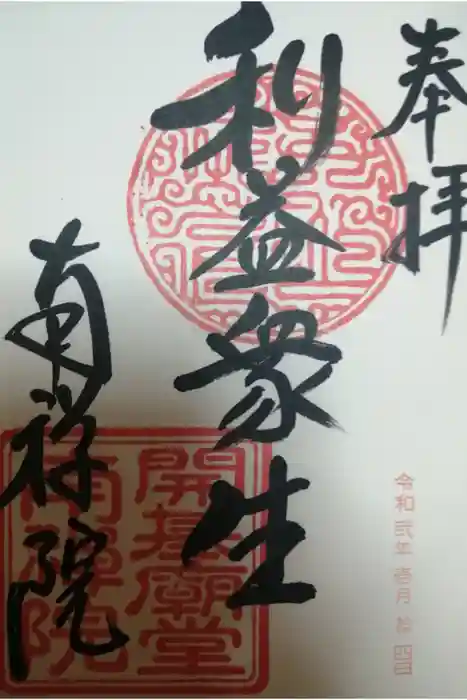 奉拝
利益衆生
南禅院
開基廟堂
南禪院
令和弐年 壱月 拾四日